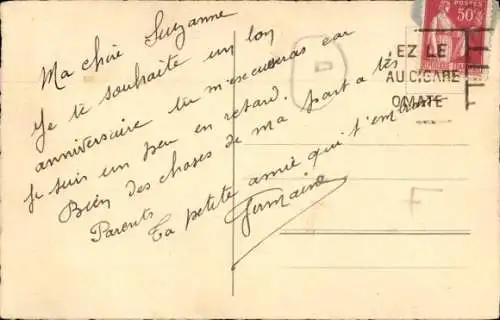 Ma chère Suzanne
Je te souhaite un bon
anniversaire tu m'excuseras car
Je suis un peu en retard.
Bien des choses de ma part a tes
Parents
Ta petite amie qui t'embrasse
Germaine
D
POSTES
50c
EZ LE
AU CIGARE
OMATE
F